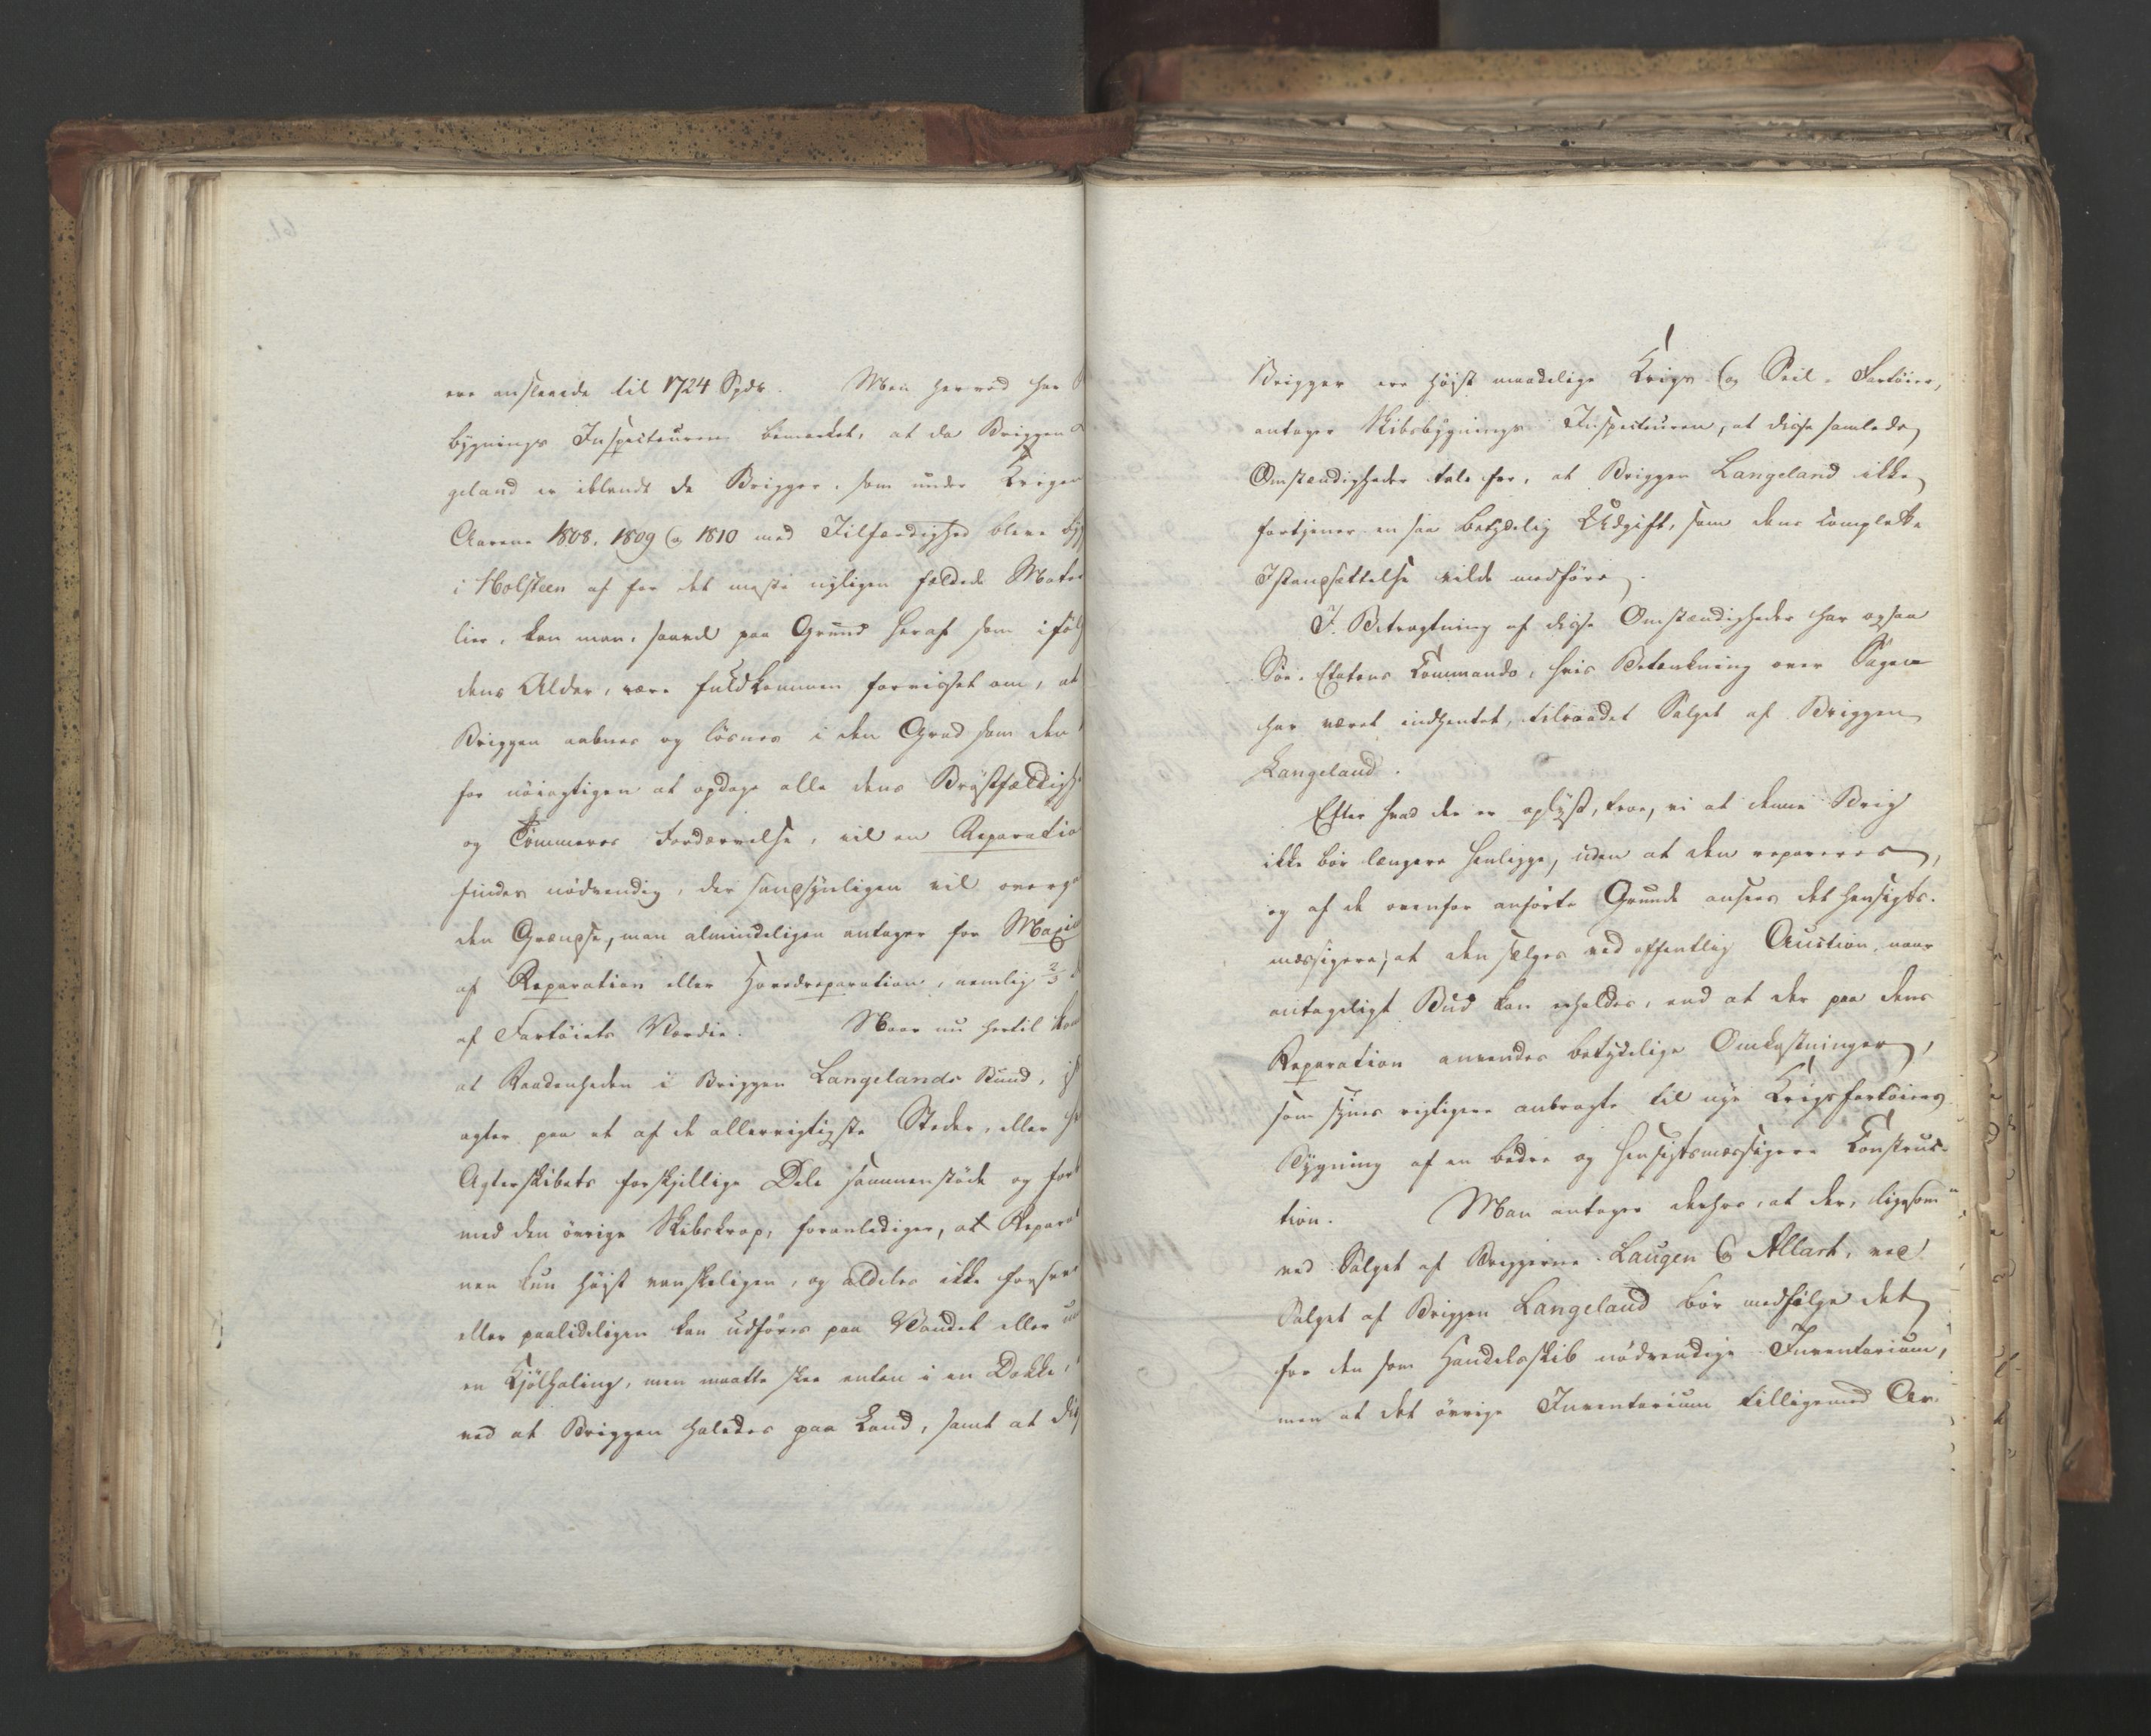 ere anslaaede til 1724 Spdr. Men herved har
bygnings Inspecteuren bemærket, at da Briggen
geland er iblandt de Brigger, som under Krigen
Aarene 1808. 1809 og 1810 med Iilfærdighed bleve byg
i Holsteen af for det meste nyligen fældede Mate
lier, kan man, saavel paa Grund heraf som ifølg
dens Alder, være fuldkommen forvisset om, at
Briggen aabnes og løsnes i den Grad som den
for nøiagtigen at opdage alle dens Brøstfældigh
og Tømmerets Fordærvelse, vil en Reparatio
findes nødvendig, der sandsynligen vil overga
den Grændse, man almindeligen antager for Maxi
af Reparation eller Hovedreparation, nemlig 2/3
af Fartøiets Værdie. Naar nu hertil kom
at Raadenheden i Briggen Langelands Bund,
agter paa et af de allervigtigste Steder, eller
Agterskibets forskjellige Dele sammenstøde og forb
med den øvrige Skibskrop, foranlediger, at Reparat
nen kun høist vanskeligen, og aldeles ikke forsvar
eller paalideligen kan udføres paa Vandet eller
en Kjølhaling, men maatte skee enten i en Dokke,
ved at Briggen haledes paa Land, samt at dis
Brigger ere høist maadelige Krigs og Seil-Fartøier,
antager Skibsbygnings Inspecteuren, at disse samlede
Omstændigheder tale for, at Briggen Langeland ikke
fortjener en saa betydelig Udgift, som dens complette
Istandsættelse vilde medføre.
I Betragtning af disse Omstændigheder har ogsaa
Søe-Etatens Commando, hvis Betænkning over Sagen
har været indhentet, tilraadet Salget af Briggen
Langeland.
Efter hvad der er oplyst, troe, vi at denne Brig
ikke bør længere henligge, uden at den repareres,
og af de ovenfor anførte Grunde ansees det hensigts-
mæssigere, at den sælges ved offentlig Auction, naar
antageligt Bud kan erholdes, end at der paa dens
Reparation anvendes betydelige Omkostninger,
som synes rigtigere anbragte til nye Krigsfartøiers
Bygning af en bedre og hensigtsmæssigere Construc-
tion. Man antager derhos, at der, ligesom
ved Salget af Briggerne Laugen og Allart, ved
Salget af Briggen Langeland bør medfølge det
for den som Handelsskib nødvendige Inventarium,
men at det øvrige Inventarium tilligemed Ar-